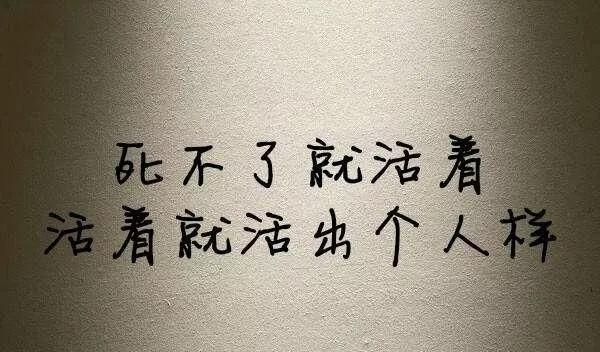 死不了就活着
活着就活出个人样